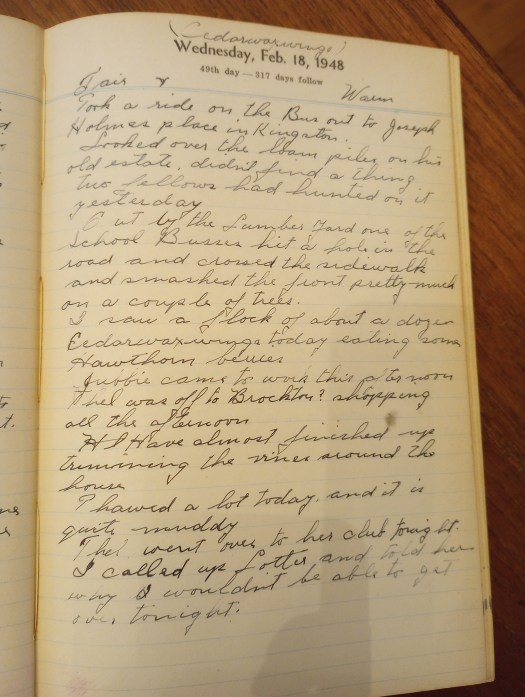 (Cedarwaxwings)
Wednesday, Feb. 18, 1948
49th day — 317 days follow
Fair & Warm
Took a ride on the Bus out to Joseph
Holmes place in Kingston.
Looked over the loam piles on his
old estate, didn't find a thing
two fellows had hunted on it
yesterday
Out by the Lumber Yard one of the
School Busses hit a hole in the
road and crossed the sidewalk
and smashed the front pretty much
on a couple of trees.
I saw a flock of about a dozen
Cedarwaxwings today eating some
Hawthorn berries
came to work this afternoon
Thel was off to Brockton? shopping
all the afternoon
H & I Have almost finished up
trimming the vines around the
house
Thawed a lot today, and it is
quite muddy
Thel went over to her club tonight.
I called up Lottie and told her
why I wouldn't be able to get
over tonight.